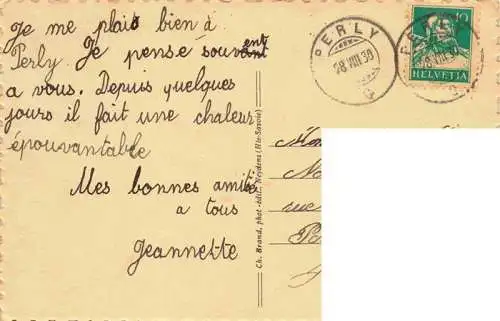 Je me plais bien à
Perly. Je pense souvent
a vous. Depuis quelques
jours il fait une chaleur
épouvantable
Mes bonnes amitié
a tous
Jeannette
Ch. Brand, phot.-édit., Neydens (Hte-Savoie)
PERLY
28 VIII 30
10
HELVETIA